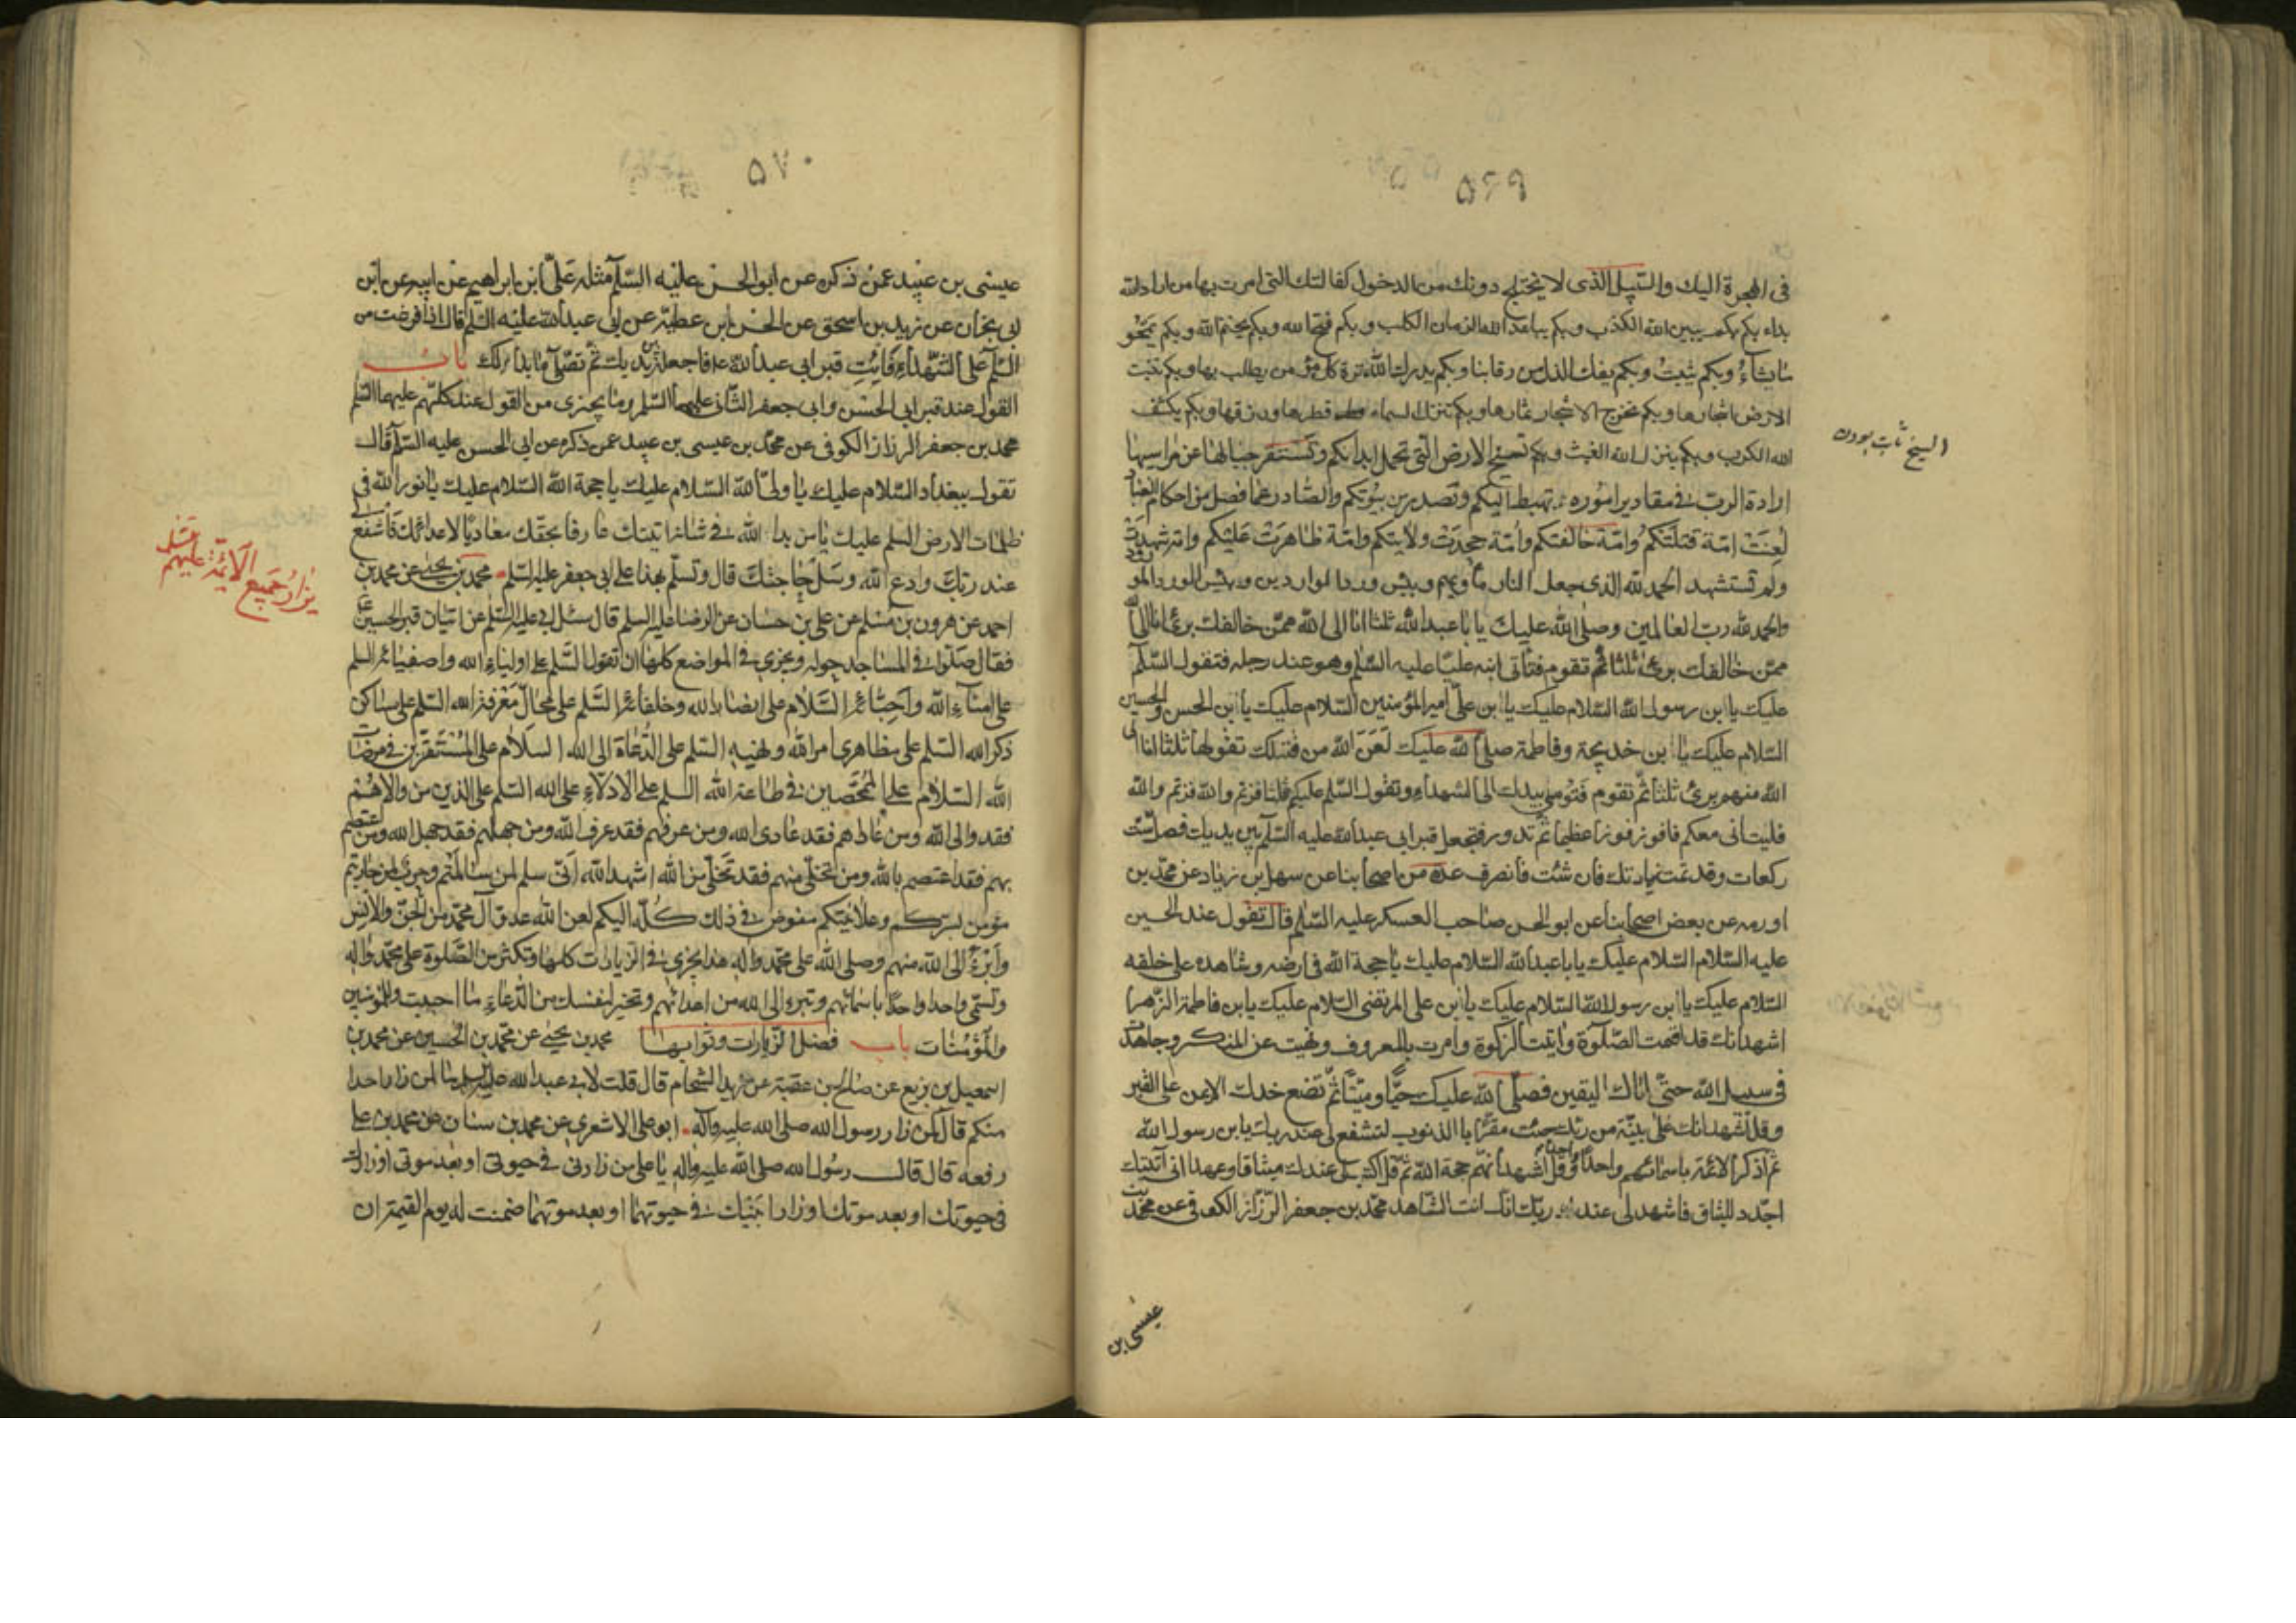 ۵۶۹
فى الهجرة اليك والسّبيل الذى لا يختلج دونك من الدخول كفالتك التى امرت بها من اراد الله
بداء بكم بكم يبين الله الكذب وبكم يباعد الله الزمان الكلب وبكم فتح الله وبكم يختم الله وبكم يمحو
ما يشاءُ وبكم يثبتُ وبكم يفك الذل من رقابنا وبكم يدرك الله ترة كل مؤمن يطلب بها وبكم تنبت
الارض اشجارها وبكم تخرج الاشجار ثمارها وبكم تنزل السماء قطرها ورزقها وبكم يكشف
الله الكرب وبكم ينزل الله الغيث وبكم تسيخ الارض التى تحمل ابدانكم وتستقر جبالها عن مراسيها
السيخ ثابت بودن
ارادة الرب فى مقادير اموره تهبط اليكم وتصدر من بيوتكم والصّادر عما فصل من احكام العباد
لُعِنَتْ امّة قتلتكم وامّة خالفتكم وامّة جحدت ولايتكم وامّة ظاهرت عليكم وامّة شهدت
ولم تستشهد الحمد لله الذى جعل النار مأويهم وبئس ورد الواردين وبئس الورد المورود
والحمد لله رب العالمين وصلى الله عليك يا با عبد الله ثلثا انا الى الله ممّن خالفك برئ انا الى الله
ممّن خالفك برئ ثلثا ثمّ تقوم فتأتى ابنه عليّا عليه السّلم وهو عند رجله فتقول السّلم
عليك يا ابن رسول الله السّلام عليك يا ابن علىّ امير المؤمنين السّلام عليك يا ابن الحسن والحسين
السّلام عليك يا ابن خديجة وفاطمة صلى الله عليك لَعَنَ الله من قتلك تقولها ثلثا انا الى
الله منهم برئ ثلثا ثمّ تقوم فتومى بيدك الى الشهداء وتقول السّلم عليكم ثلثا فزتم والله فزتم والله
فليت انى معكم فافوز فوزا عظيما ثمّ تدور فتجعل قبر ابى عبد الله عليه السّلم بين يديك فصل ستّ
ركعات وقد تمت زيارتك فان شئت فانصرف عدة من اصحابنا عن سهل بن زياد عن محمّد بن
اورمه عن بعض اصحابنا عن ابو الحسن صاحب العسكر عليه السّلم قال تقول عند الحسين
عليه السّلام السّلام عليك يا با عبد الله السّلام عليك يا حجة الله فى ارضه وشاهده على خلقه
السّلام عليك يا ابن رسول الله السّلام عليك يا ابن على المرتضى السّلام عليك يا بن فاطمة الزّهرا
اشهد انك قد اقمت الصّلوة واتيت الزكوة وامرت بالمعروف ونهيت عن المنكر وجاهدت
فى سبيل الله حتّى اتاك اليقين فصلّى الله عليك حيّا وميّتا ثمّ تضع خدك الايمن على القبر
وقل اشهد انك على بيّنة من ربّك جئت مقرّا بالذنوب لتشفع لى عند ربك يا بن رسول الله
ثم اذكر الائمّة باسمائهم واحدا واحدا وقل اشهد انهم حجة الله ثم قل اكتب لى عندك ميثاقا وعهدا انى اتيتك
اجدد الميثاق فاشهد لى عند ربّك انّك انت الشّاهد محمّد بن جعفر الرّزاز الكوفى عن محمّد بن
عيسى بن
۵۷۰
عيسى بن عبيد عمّن ذكره عن ابو الحسن عليه السّلم مثله علىّ ابن ابراهيم عن ابيه عن ابن
ابى نجران عن يزيد بن اسحق عن الحسن ابن عطيّة عن ابى عبد الله عليه السّلم قال اذا فرغت من
السّلم على الشّهداءِ فَائتِ قبر ابى عبد الله فاجعله بين يديك ثمّ تصلّى ما بدا لك باب
القول عند قبر ابى الحسن وابى جعفر الثّانى عليهما السّلم وما يجزى من القول عند كلّهم عليهم السّلم
محمد بن جعفر الرزاز الكوفى عن محمّد بن عيسى بن عبيد عمن ذكره عن ابى الحسن عليه السّلم قال
تقول ببغداد السّلام عليك يا ولىّ الله السّلام عليك يا حجة الله السّلام عليك يا نور الله فى
ظلمات الارض السلم عليك يا من بدا لله فى شأنه اتيتك عارفا بحقّك معاديا لاعدائك فاشفع لى
عند ربّك وادع الله وسل حاجتك قال وتسلّم بهذا على ابى جعفر عليه السّلم محمد بن يحيى عن محمد بن
يزار جميع الائمّة عليهم
احمد عن هرون بن مسلم عن على بن حسان عن الرضا عليه السلم قال سئل ابى عليه السّلم عن اتيان قبر الحسين
فقال صلّوا فى المساجد حوله ويجزى فى المواضع كلها ان تقول السّلم على اولياء الله واصفيائه السلم
على امناءِ الله واحبّائه السّلام على انصار الله وخلفائه السّلم على محالّ معرفة الله السّلم على مساكن
ذكر الله السّلم على مظاهرى امر الله ونهيه السّلم على الدُّعاة الى الله السلام على المستقرّين فى مرضات
الله السّلام على الممحّصين فى طاعة الله السلم على الادلاّء على الله السّلم على الذين من والاهُمْ
فقد والى الله ومن عاداهم فقد عادى الله ومن عرفهم فقد عرف الله ومن جهلهم فقد جهل الله ومن اعتصم
بهم فقد اعتصم بالله ومن تخلّى منهم فقد تخلّى من الله اشهد الله انّى سلم لمن سالمتم وحرب لمن حاربتم
مؤمن بسرّكم وعلانيتكم مفوض فى ذلك كُلّه اليكم لعن الله عدوّ آل محمّد من الجنّ والانس
وابرءُ الى الله منهم وصلى الله على محمّد واله هذا يجزى فى الزيارات كلها وتكثر من الصّلوة على محمّد واله
وتسمّى واحدا واحدًا باسمائهم وتبرء الى الله من اعدائهم وتخير لنفسك من الدّعاء ما احببت وللمؤمنين
والمؤمنات باب فضل الزيارات وثوابها محمد بن يحيى عن محمّد بن الحسين عن محمد بن
اسمعيل بن بزيع عن صالح بن عقبة عن زيد الشحام قال قلت لابى عبد الله عليه السلم ما لمن زار احدا
منكم قال كمن زار رسول الله صلى الله عليه وآله ابو على الاشعرى عن محمد بن سنان عن محمد بن على
رفعه قال قال رسول الله صلى الله عليه واله يا على من زارنى فى حيوتى او بعد موتى او زارك
فى حيوتك او بعد موتك او زار ابنيك فى حيوتهما او بعد موتهما ضمنت له يوم القيمة ان